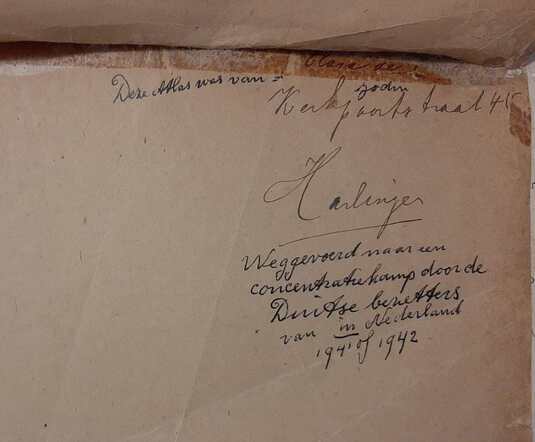 Deze Atlas was van =
Kerkpoortstraat 45
Harlingen
Weggevoerd naar een
concentratiekamp door de
Duitse bezetters
van in Nederland
1941 of 1942